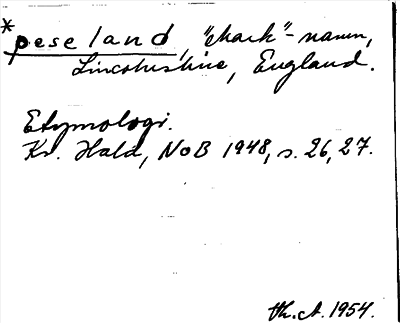 *peseland, "mark"-namn,
Lincolnshire, England.
Etymologi.
Kr. Hald, NoB 1948, s. 26, 27.
1954.